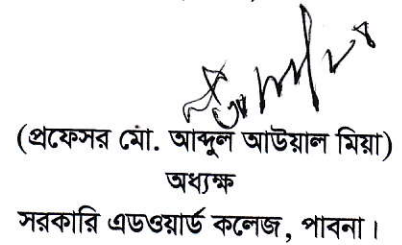 (প্রফেসর মো. আব্দুল আউয়াল মিয়া)
অধ্যক্ষ
সরকারি এডওয়ার্ড কলেজ, পাবনা।